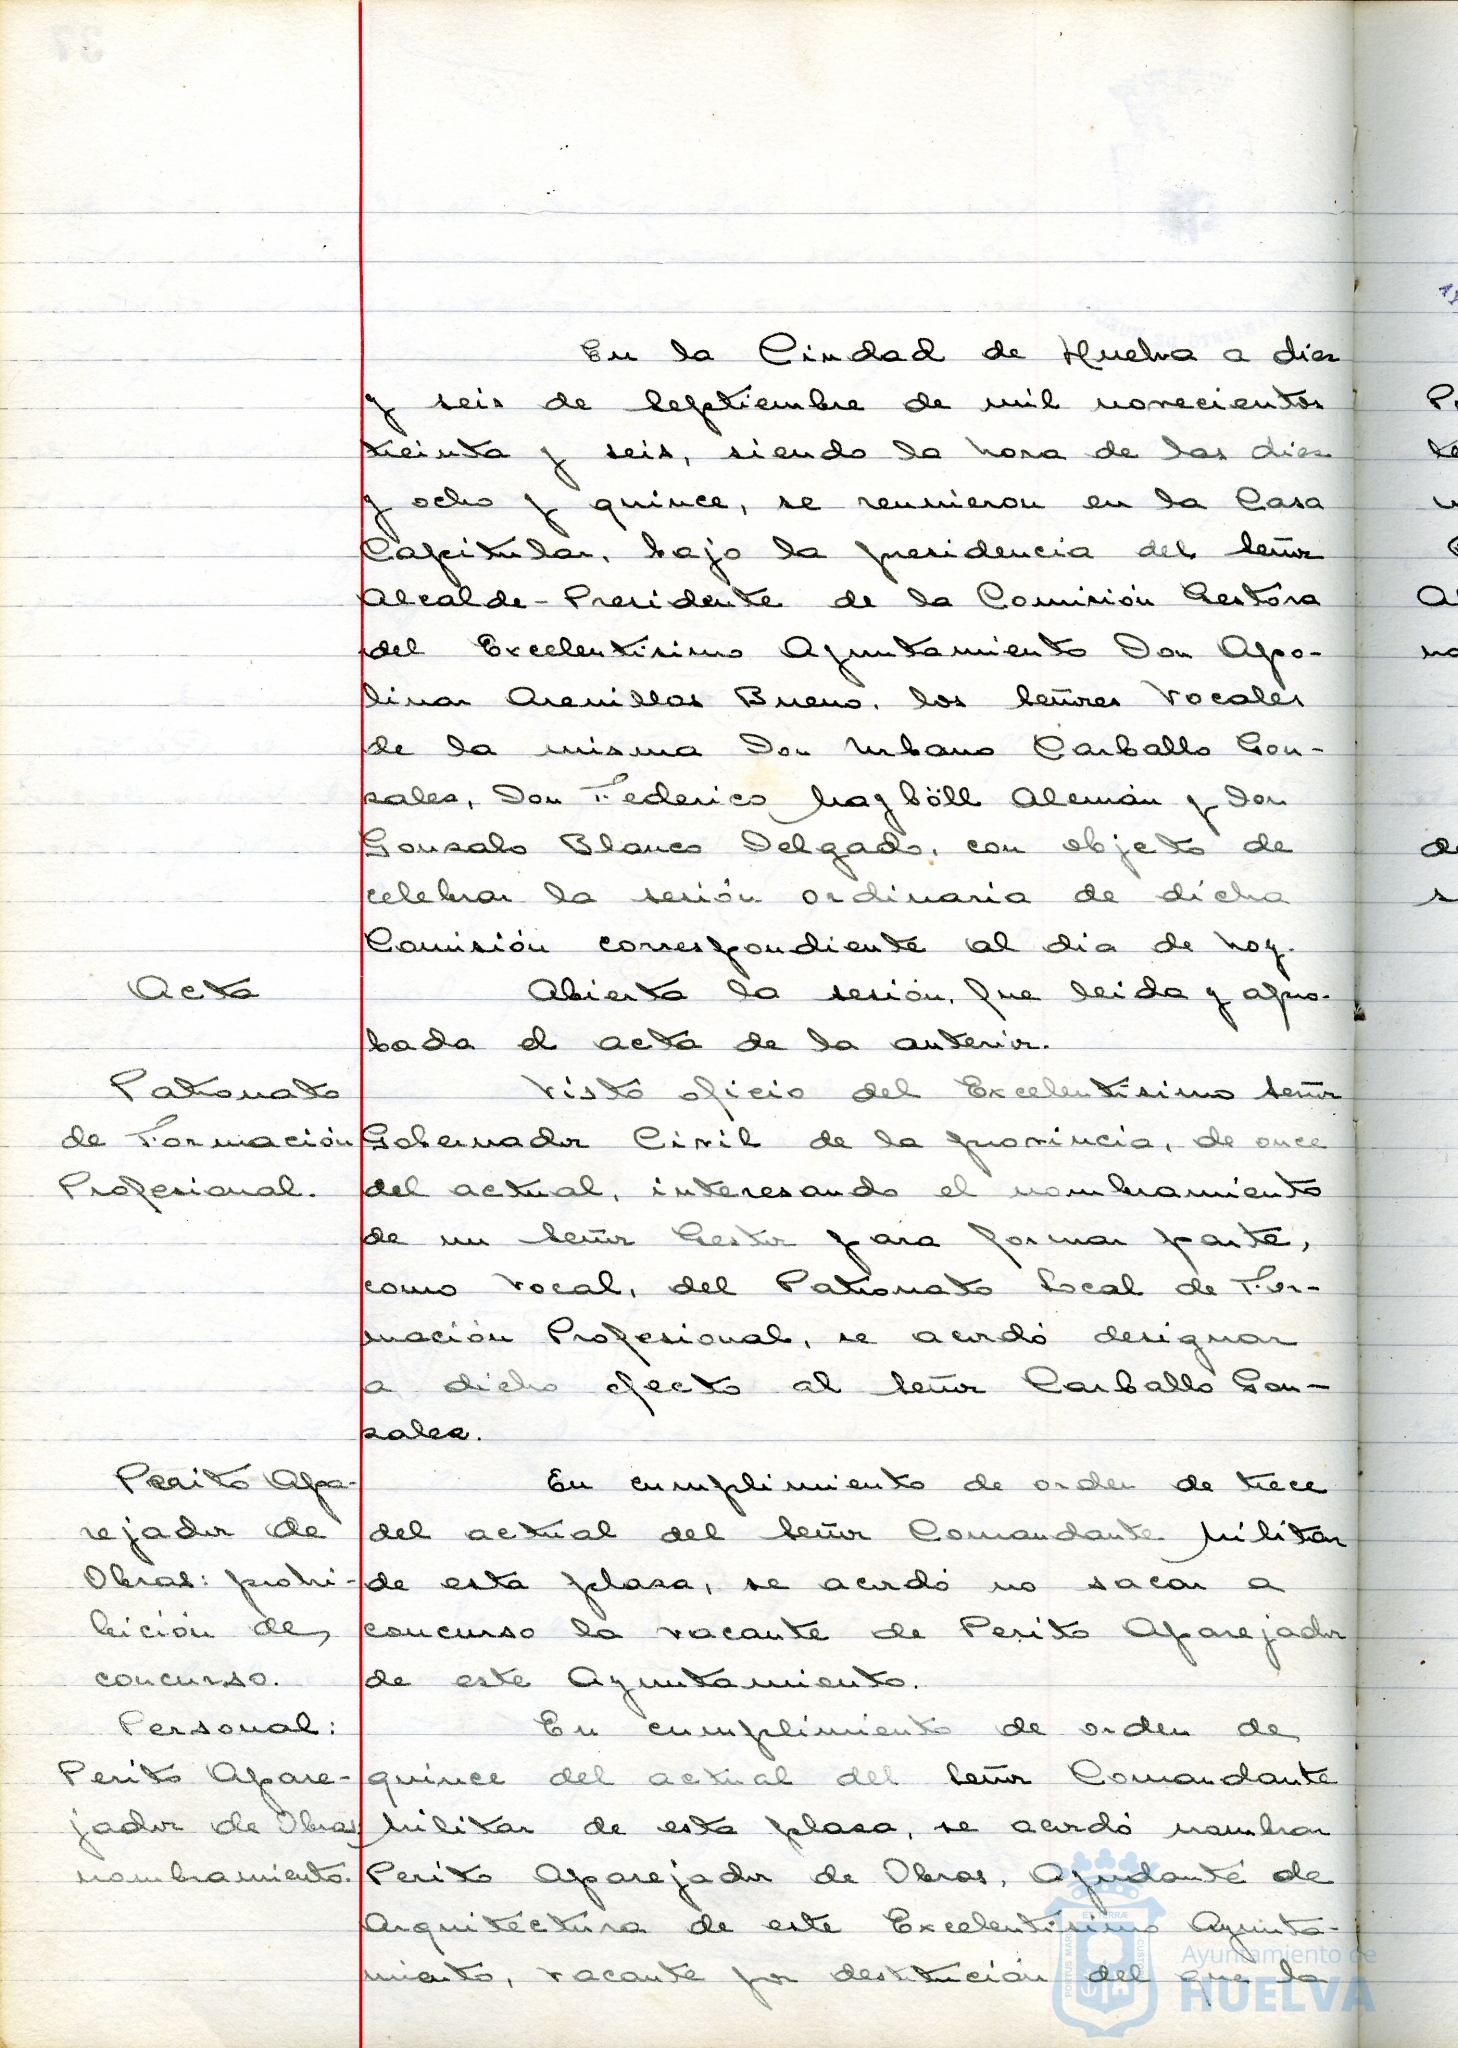 En la Ciudad de Huelva a diez
y seis de Septiembre de mil novecientos
treinta y seis, siendo la hora de las diez
y ocho y quince, se reunieron en la Casa
Capitular, bajo la presidencia del Señor
Alcalde-Presidente de la Comisión Gestora
del Excelentísimo Ayuntamiento Don Apo-
linar Arenillas Bueno, los Señores Vocales
de la misma Don Urbano Carballo Gon-
zales, Don Federico Mayböll Alemán y Don
Gonzalo Blanco Delgado, con objeto de
celebrar la sesión ordinaria de dicha
Comisión correspondiente al dia de hoy.
Acta
Abierta la sesión, fue leida y apro-
bada el acta de la anterior.
Patronato
de Formación
Profesional.
Visto oficio del Excelentísimo Señor
Gobernador Civil de la provincia, de once
del actual, interesando el nombramiento
de un Señor Gestor para formar parte,
como Vocal, del Patronato Local de For-
mación Profesional, se acordó designar
a dicho efecto al Señor Carballo Gon-
zales.
Perito Apa-
rejador de
Obras: prohi-
bición de
concurso.
En cumplimiento de orden de trece
del actual del Señor Comandante Militar
de esta plaza, se acordó no sacar a
concurso la vacante de Perito Aparejador
de este Ayuntamiento.
Personal:
Perito Apare-
jador de Obras
nombramiento.
En cumplimiento de orden de
quince del actual del Señor Comandante
Militar de esta plaza, se acordó nombrar
Perito Aparejador de Obras, Ayudante de
Arquitectura de este Excelentísimo Ayunta-
miento, vacante por destitución del que la
Ayuntamiento de
HUELVA